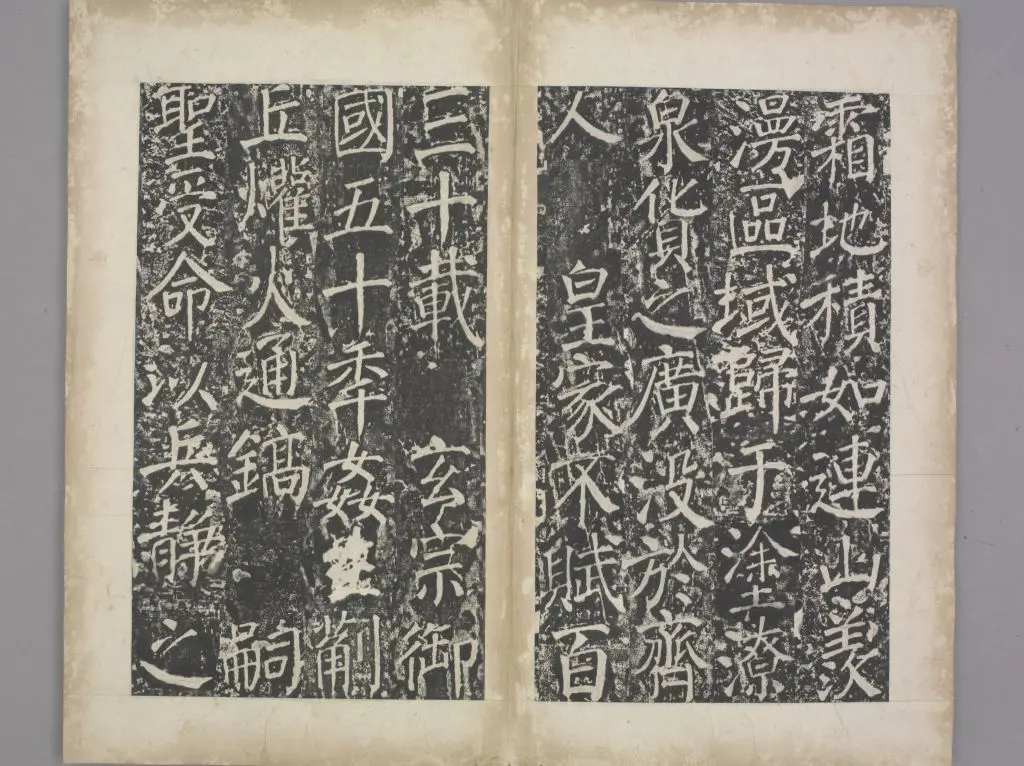 霜地積如連山羨
漫區域歸于塗潦
泉貨之廣没於齊
人 皇家不賦百
三十載 玄宗御
國五十年姦生薊
丘爟火通鎬 嗣
聖受命以兵靜之